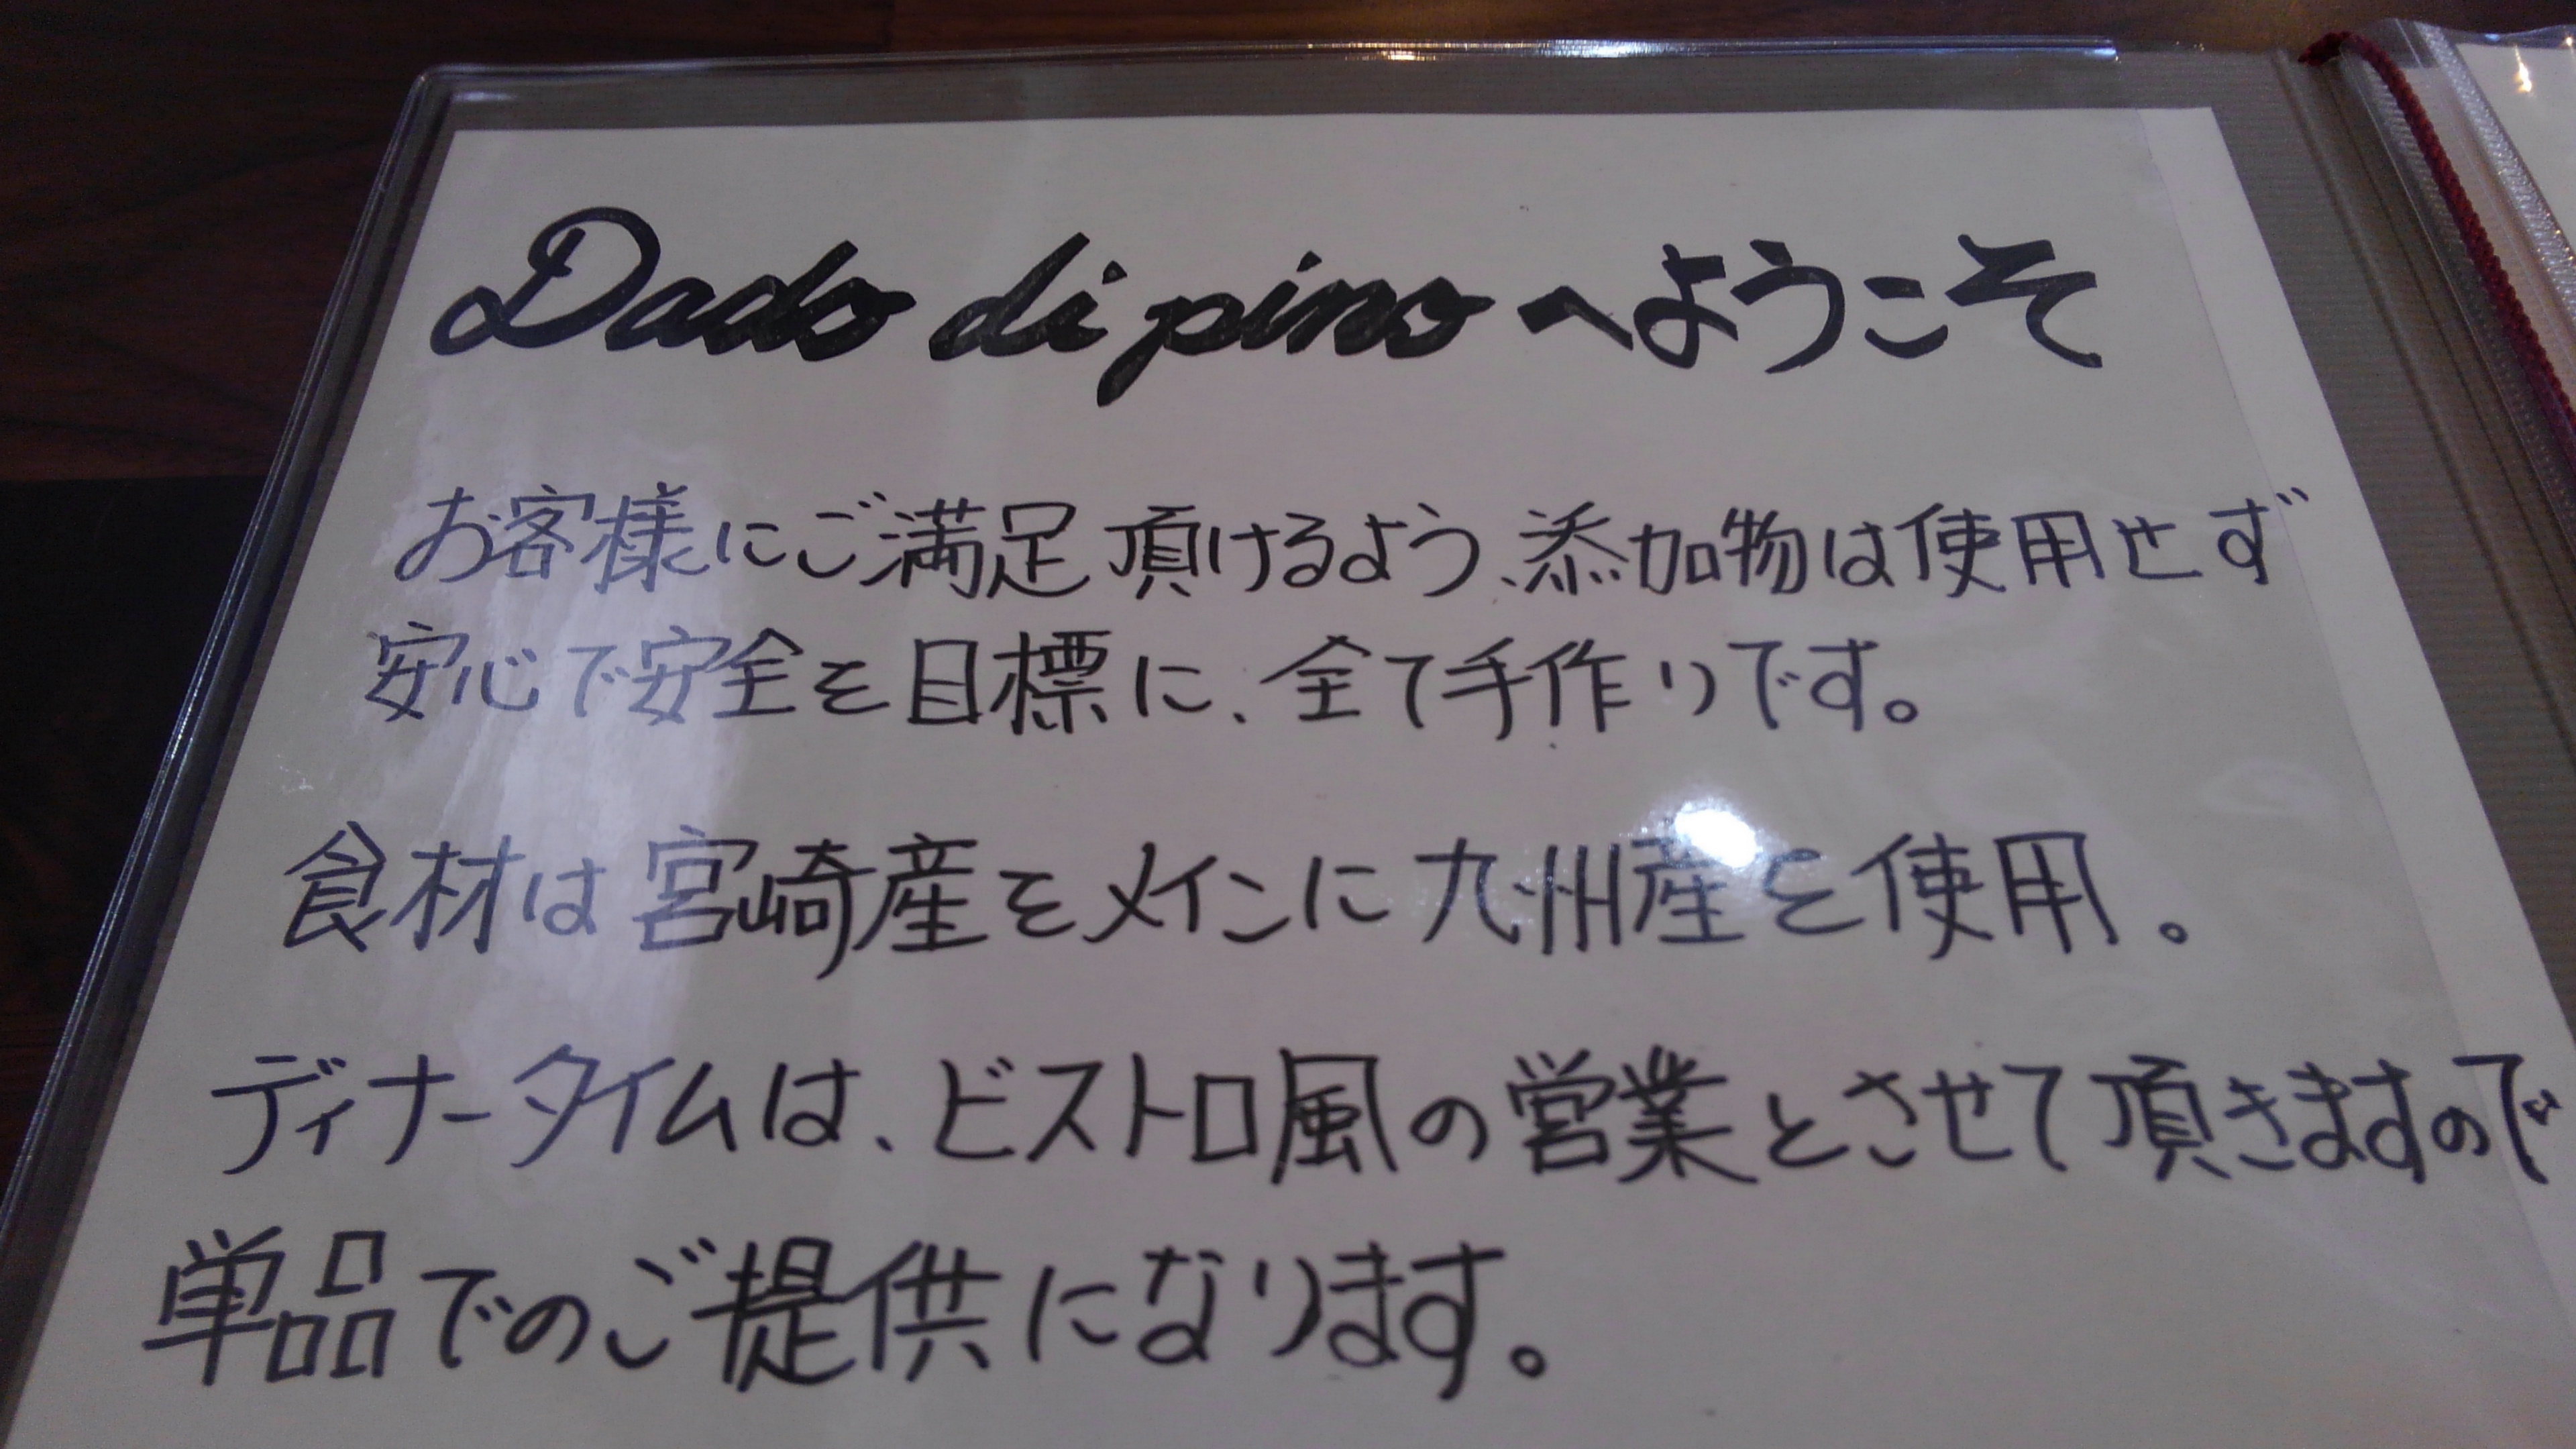 Dado di pinoへようこそ
お客様にご満足頂けるよう、添加物は使用せず
安心で安全を目標に、全て手作りです。
食材は宮崎産をメインに九州産を使用。
ディナータイムは、ビストロ風の営業とさせて頂きますので
単品でのご提供になります。